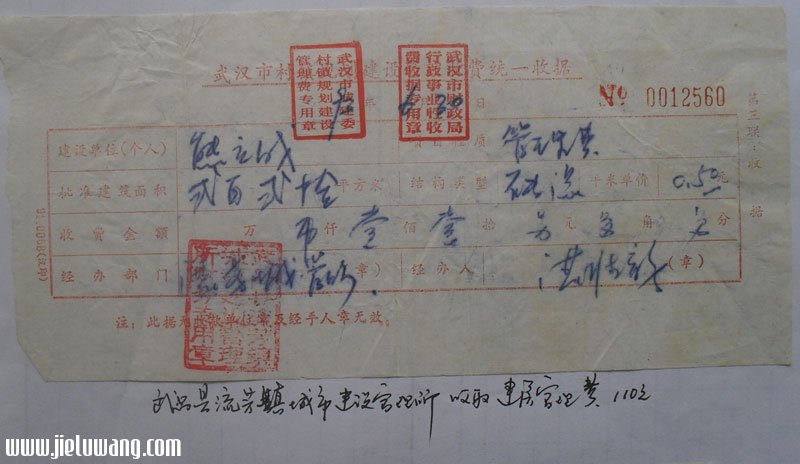 武汉市村 建设 费统一收据
武汉市城建委
村镇规划建设
管理费专用章
武汉市财政局
行政事业性收
费收据专用章
日
№ 0012560
第三联:收据
建设单位(个人) 熊 性质 管理费
批准建筑面积 弍百弍十 平方米 结构类型 砖混 平米单价 0.50元
收费金额 万 仟 壹 佰 壹 拾 元 角 分
经办部门 (章) 经办人 (章)
注:此据无收款单位章及经手人章无效。
武昌县流芳镇城市建设管理所 收取 建房管理费 110元
www.jieluwang.com